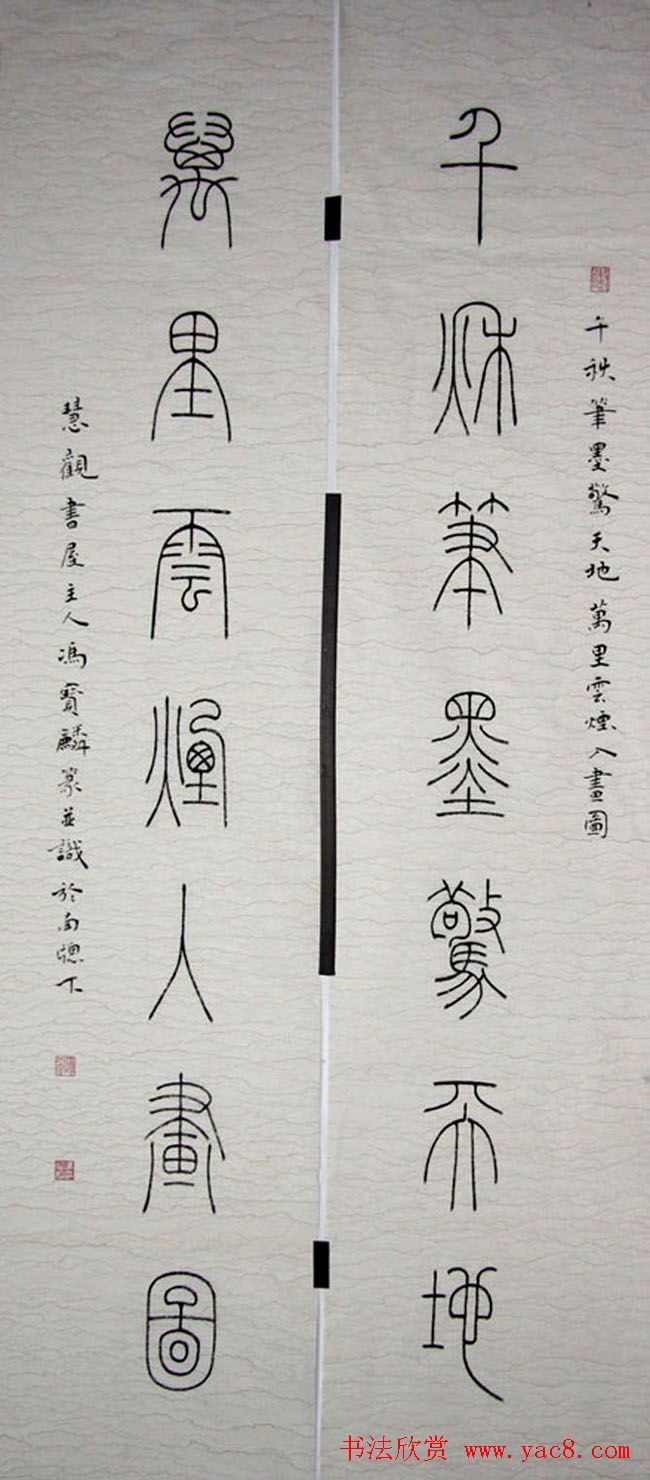 千秋筆墨驚天地 萬里雲煙入畫圖
千秋筆墨驚天地
萬里雲煙入畫圖
慧觀書屋主人馮寶麟篆並識於南牕下
书法欣赏 www.yac8.com